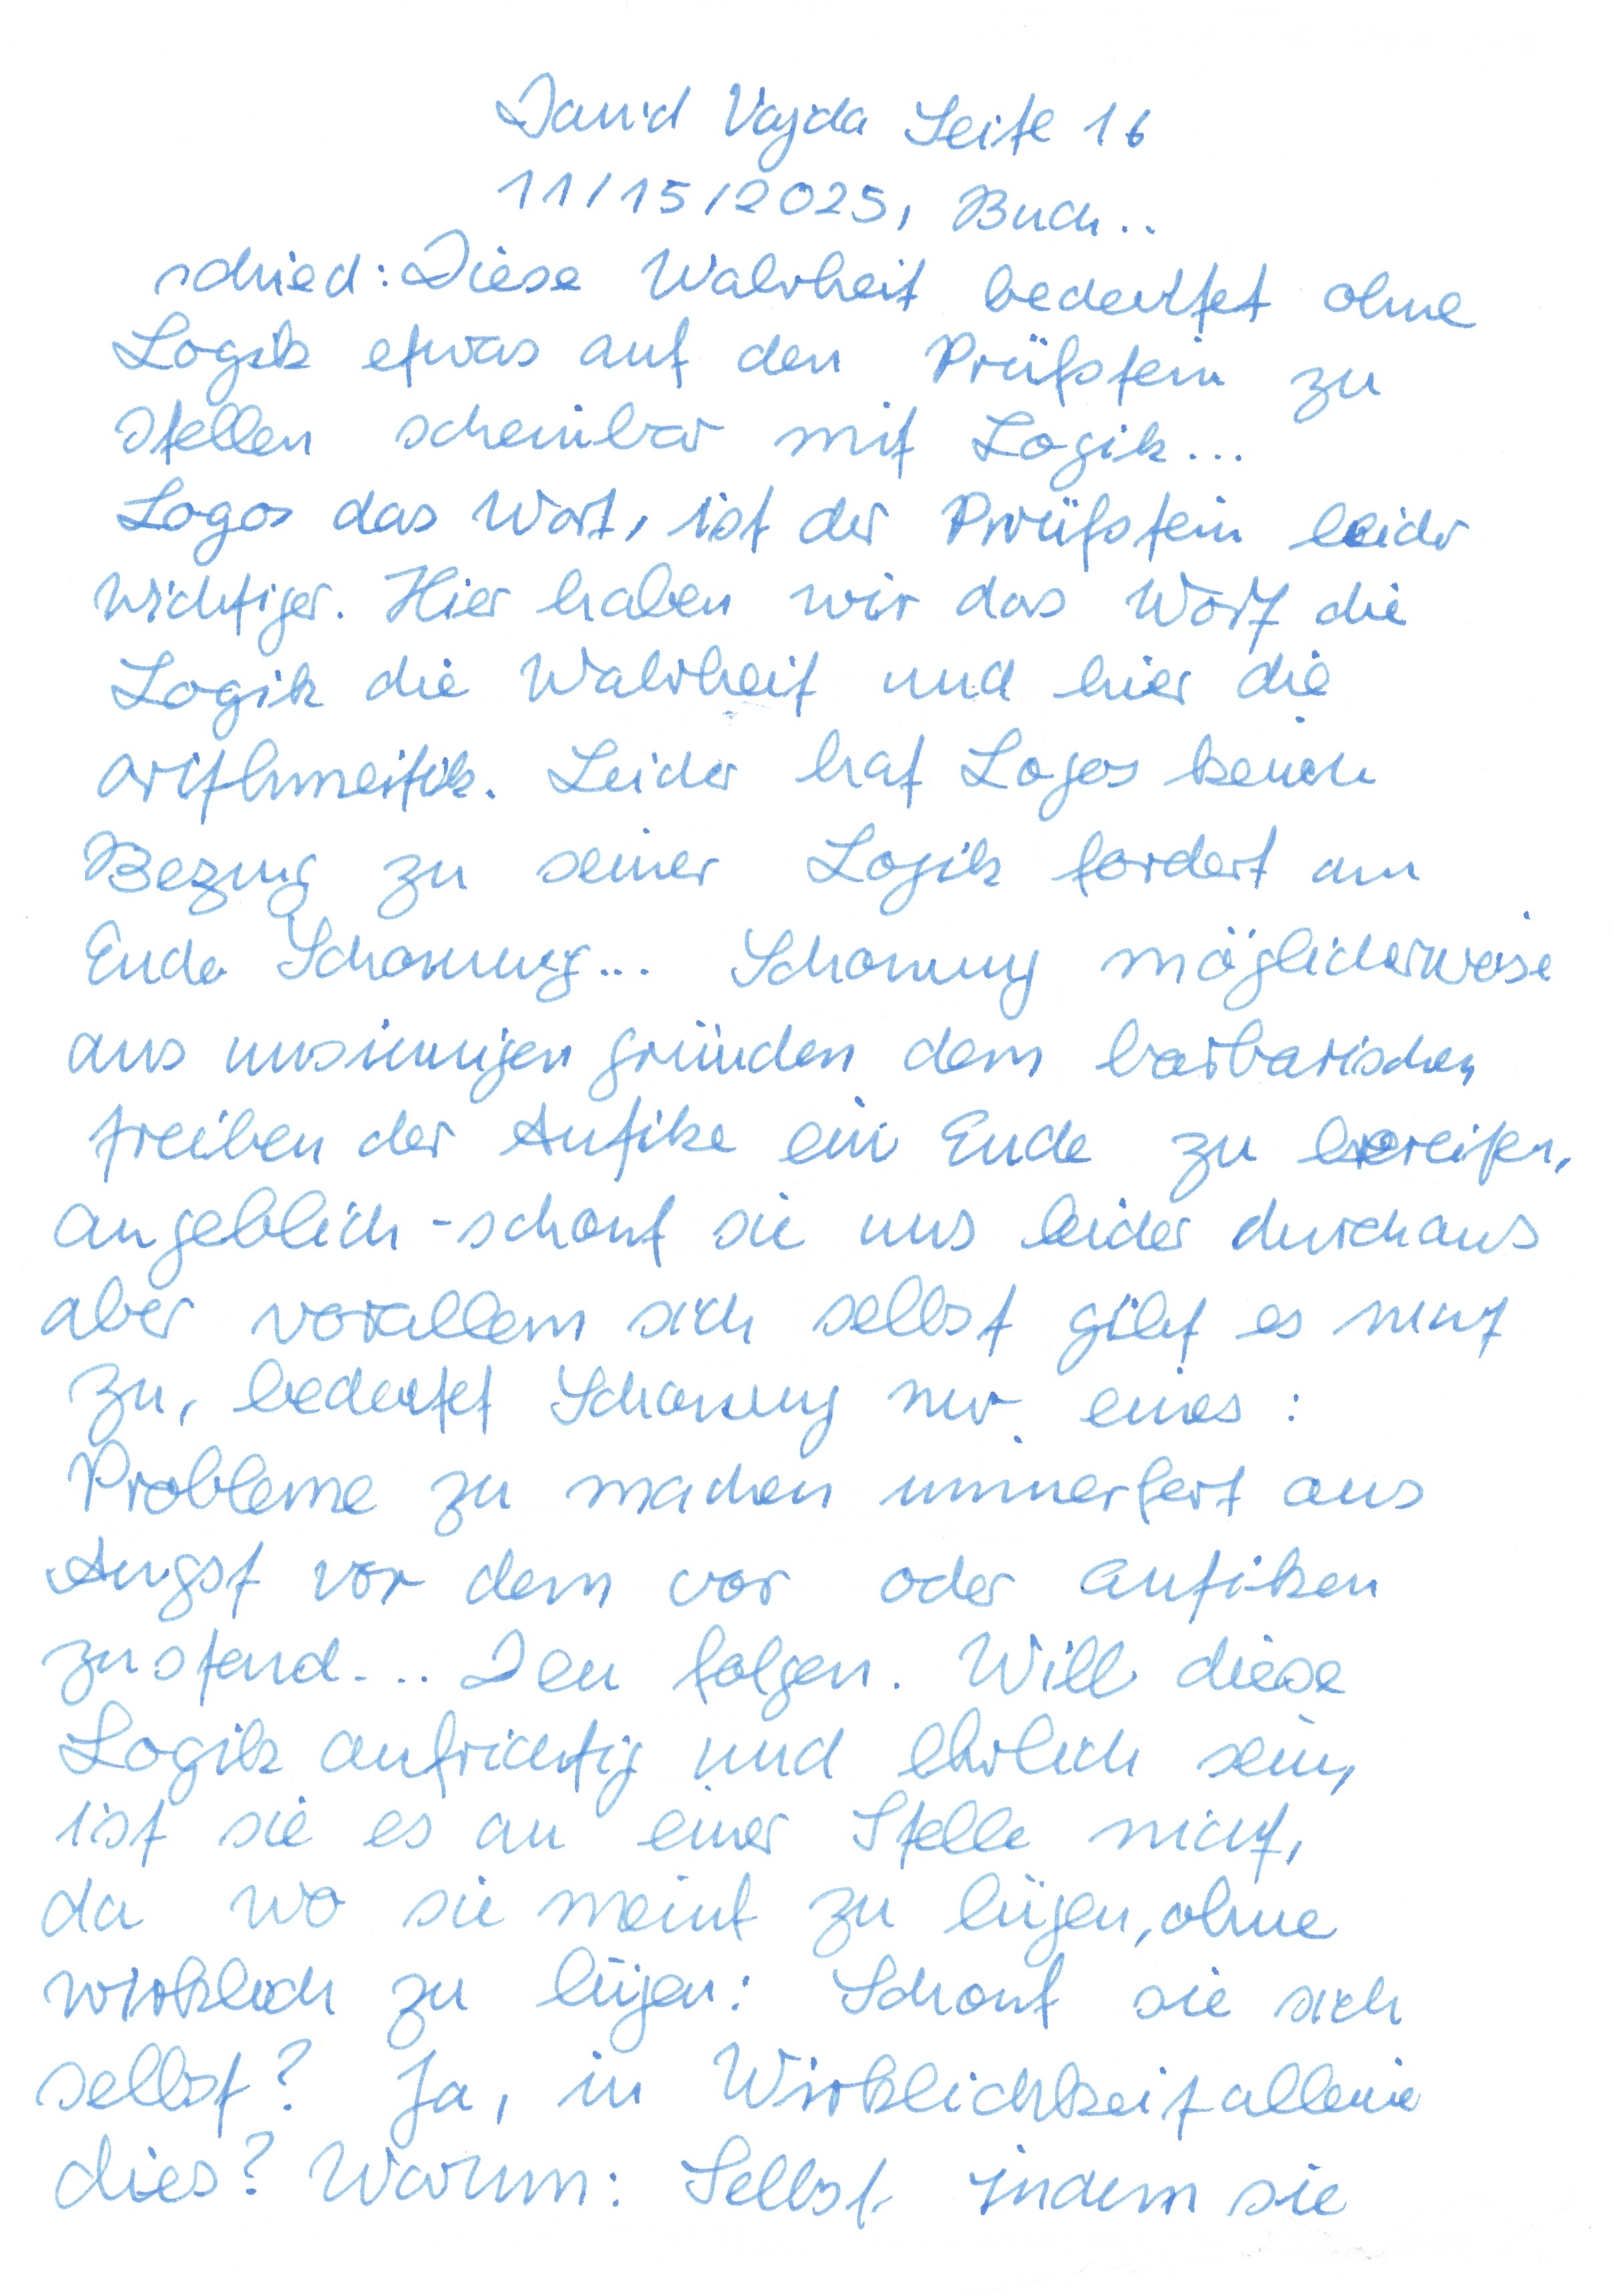 David Vajda Seite 16
11/15/2025, Buch..
schied: Diese Wahrheit bedeutet ohne
Logik etwas auf den Prüfstein zu
stellen scheinbar mit Logik...
Logos das Wort, ist der Prüfstein leider
wichtiger. Hier haben wir das Wort die
Logik die Wahrheit und hier die
arithmeitik. Leider hat Logos keinen
Bezug zu seiner Logik fordert am
Ende Schonung... Schonung möglicherweise
aus unsinnigen gründen dem barbarischen
treiben der Antike ein Ende zu bereiten,
angeblich - schont sie uns leider durchaus
aber vorallem sich selbst gibt es nicht
zu, bedeutet Schonung nur eines:
Probleme zu machen immerfort aus
Angst vor dem vor oder antiken
zustand... Den folgen. Will diese
Logik aufrichtig und ehrlich sein,
ist sie es an einer Stelle nicht,
da wo sie meint zu lügen, ohne
wirklich zu lügen: Schont sie sich
selbst? Ja, in Wirklichkeit alleine
dies? Warum: Selbst indem sie